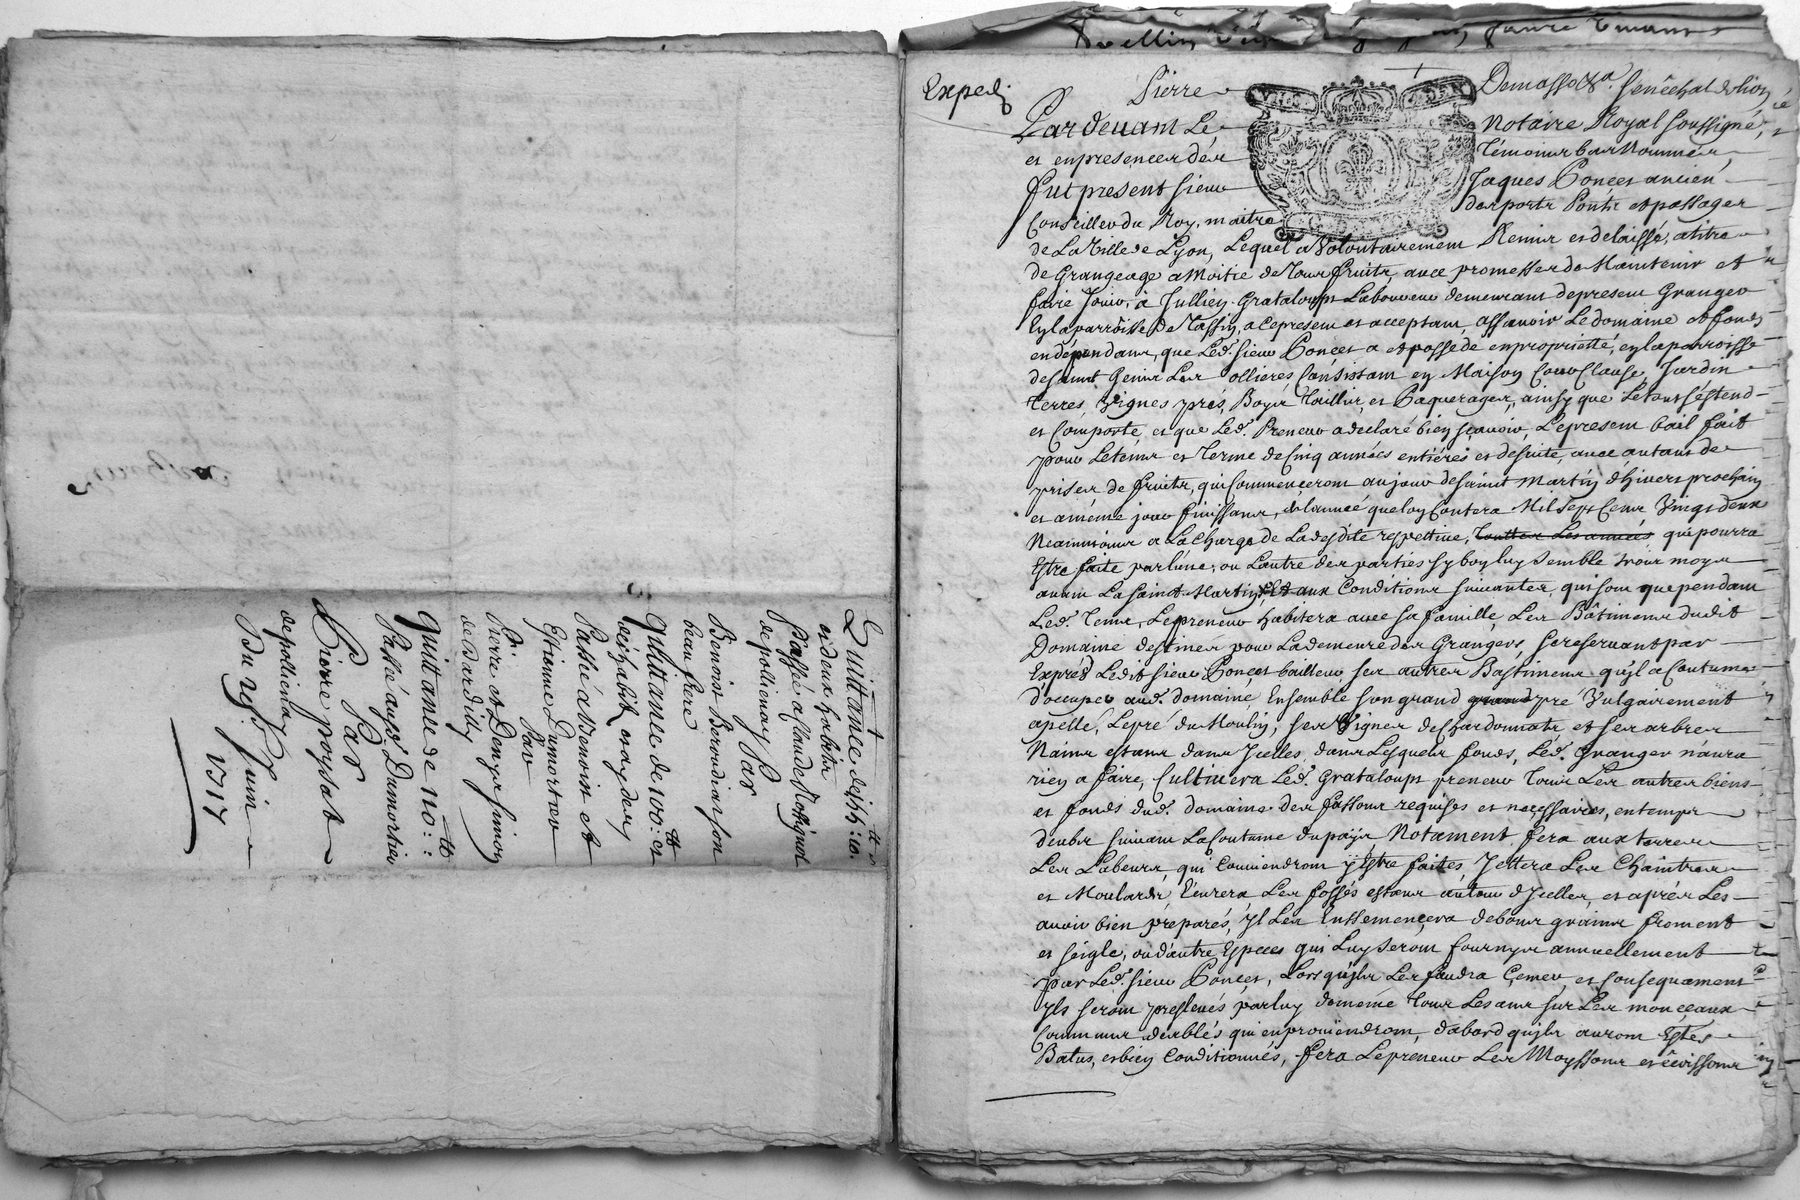 Quittance de
et deux habits
Passée a Claude Rossignol
de pollienay Par
Benoist Beraudias son
beau frere
Quittance de 100:ᵗᵗ et
dés habits
Passée a Benoist et
Estienne Dumortier
Par
Pierre et Denys Simon
de Dardilly
Quittance de 110:ᵗᵗ
Passée aud. Dumortier
Par
Pierre poysat
de pollienay
Du 29ᵉ Juin
1717
Exped.
Pierre Demasso &ᵃ. Senêchal de lion
Pardevant Le Notaire Royal soussigné,
et en presence des témoins bas Nommés,
fut present sieur Jaques Poncet ancien
Conseiller du Roy, maitre des ports Ponts et passages
de La Ville de Lyon, Lequel a Volontairement Remis et delaissé, a titre
de Grangeage a Moitié de Tous fruits, avec promesses de Maintenir et
faire Jouir, à Jullien Grataloup Laboureur demeurant de present Granger
En la parroisse de Tassin, a ce present et acceptant, assavoir Le domaine et fonds
en dépendans, que Led. sieur Poncet a et possede en proprietté, en la parroisse
de saint Genis Les ollieres Consistant en Maison Cour Clause, Jardin
Terres, Vignes, prés, Boys Taillis, et Paquerages, ainsy que Le tout s'éstend
et Comporte, et que Led. Preneur a declaré bien sçavoir, Le present bail fait
pour Le tems et Terme de Cinq années entiéres et de suitte, avec autant de
prises de fruits, qui Commenceront au jour de saint Martin d'hivers prochain
et a même jour finissant, de l'année que l'on Contera Mil Sept Cens Vingt deux
Neanmoins a La Charge de La desdite respettive, toutes Les années qui pourra
Estre faite par l'une, ou L'autre des parties sy bon luy semble trois moys
avant La saint Martin, Et aux Conditions suivantes, qui sont que pendant
Led. Tems, Le preneur habitera avec sa famille Les Bâtimens dudit
Domaine destinés pour La demeure des Grangers, se reservant par
Exprès Ledit sieur Poncet bailleur ses autres Bastimens qu'il a Coutume
d'occuper aud. domaine, Ensemble son grand grand pré Vulgairement
apellé, Le pré du Moulin, ses Vignes de Chardonnets, et ses arbres
Nains estans dans Jcelles, dans Lesquels fonds, Led. Granger n'aura
rien a faire, Cultivera Led. Grataloup preneur Tous Les autres biens
et fonds dud. domaine des fassons requises et necessaires, en temps
deubs suivant La Coutume du païs, Notament fera aux terres
Les Labeurs, qui Conviendront y Estre faites, Jettera Les Chaintres
et Moulards, Curera Les fossés estans autour d'Jcelles, et aprés Les
avoir bien preparés, Jl Les Enssemencera de bons grains froment
et seigle, ou d'autre Especes qui Luy seront fournys annuellement
par Led. sieur Poncet, Lors qu'jls Les faudra Cemer, et Consequament
Jls seront preslevés par luy de meme Tous Les ans sur Les monceaux
Communs des blés qui en proviendront, d'abord qu'jls auront Estés
Batus, et bien Conditionnés, fera Le preneur Les Moyssons et